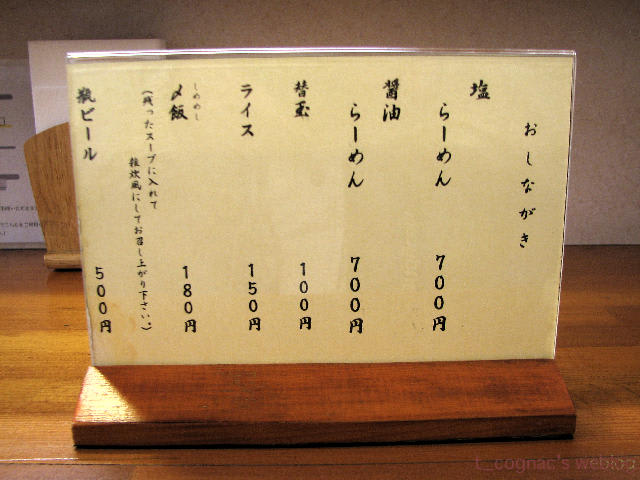 おしながき
塩らーめん 700円
醤油らーめん 700円
替玉 100円
ライス 150円
しめめし
〆飯 180円
(残ったスープに入れて
雑炊風にしてお召し上がり下さい。)
瓶ビール 500円
t_cognac's weblog